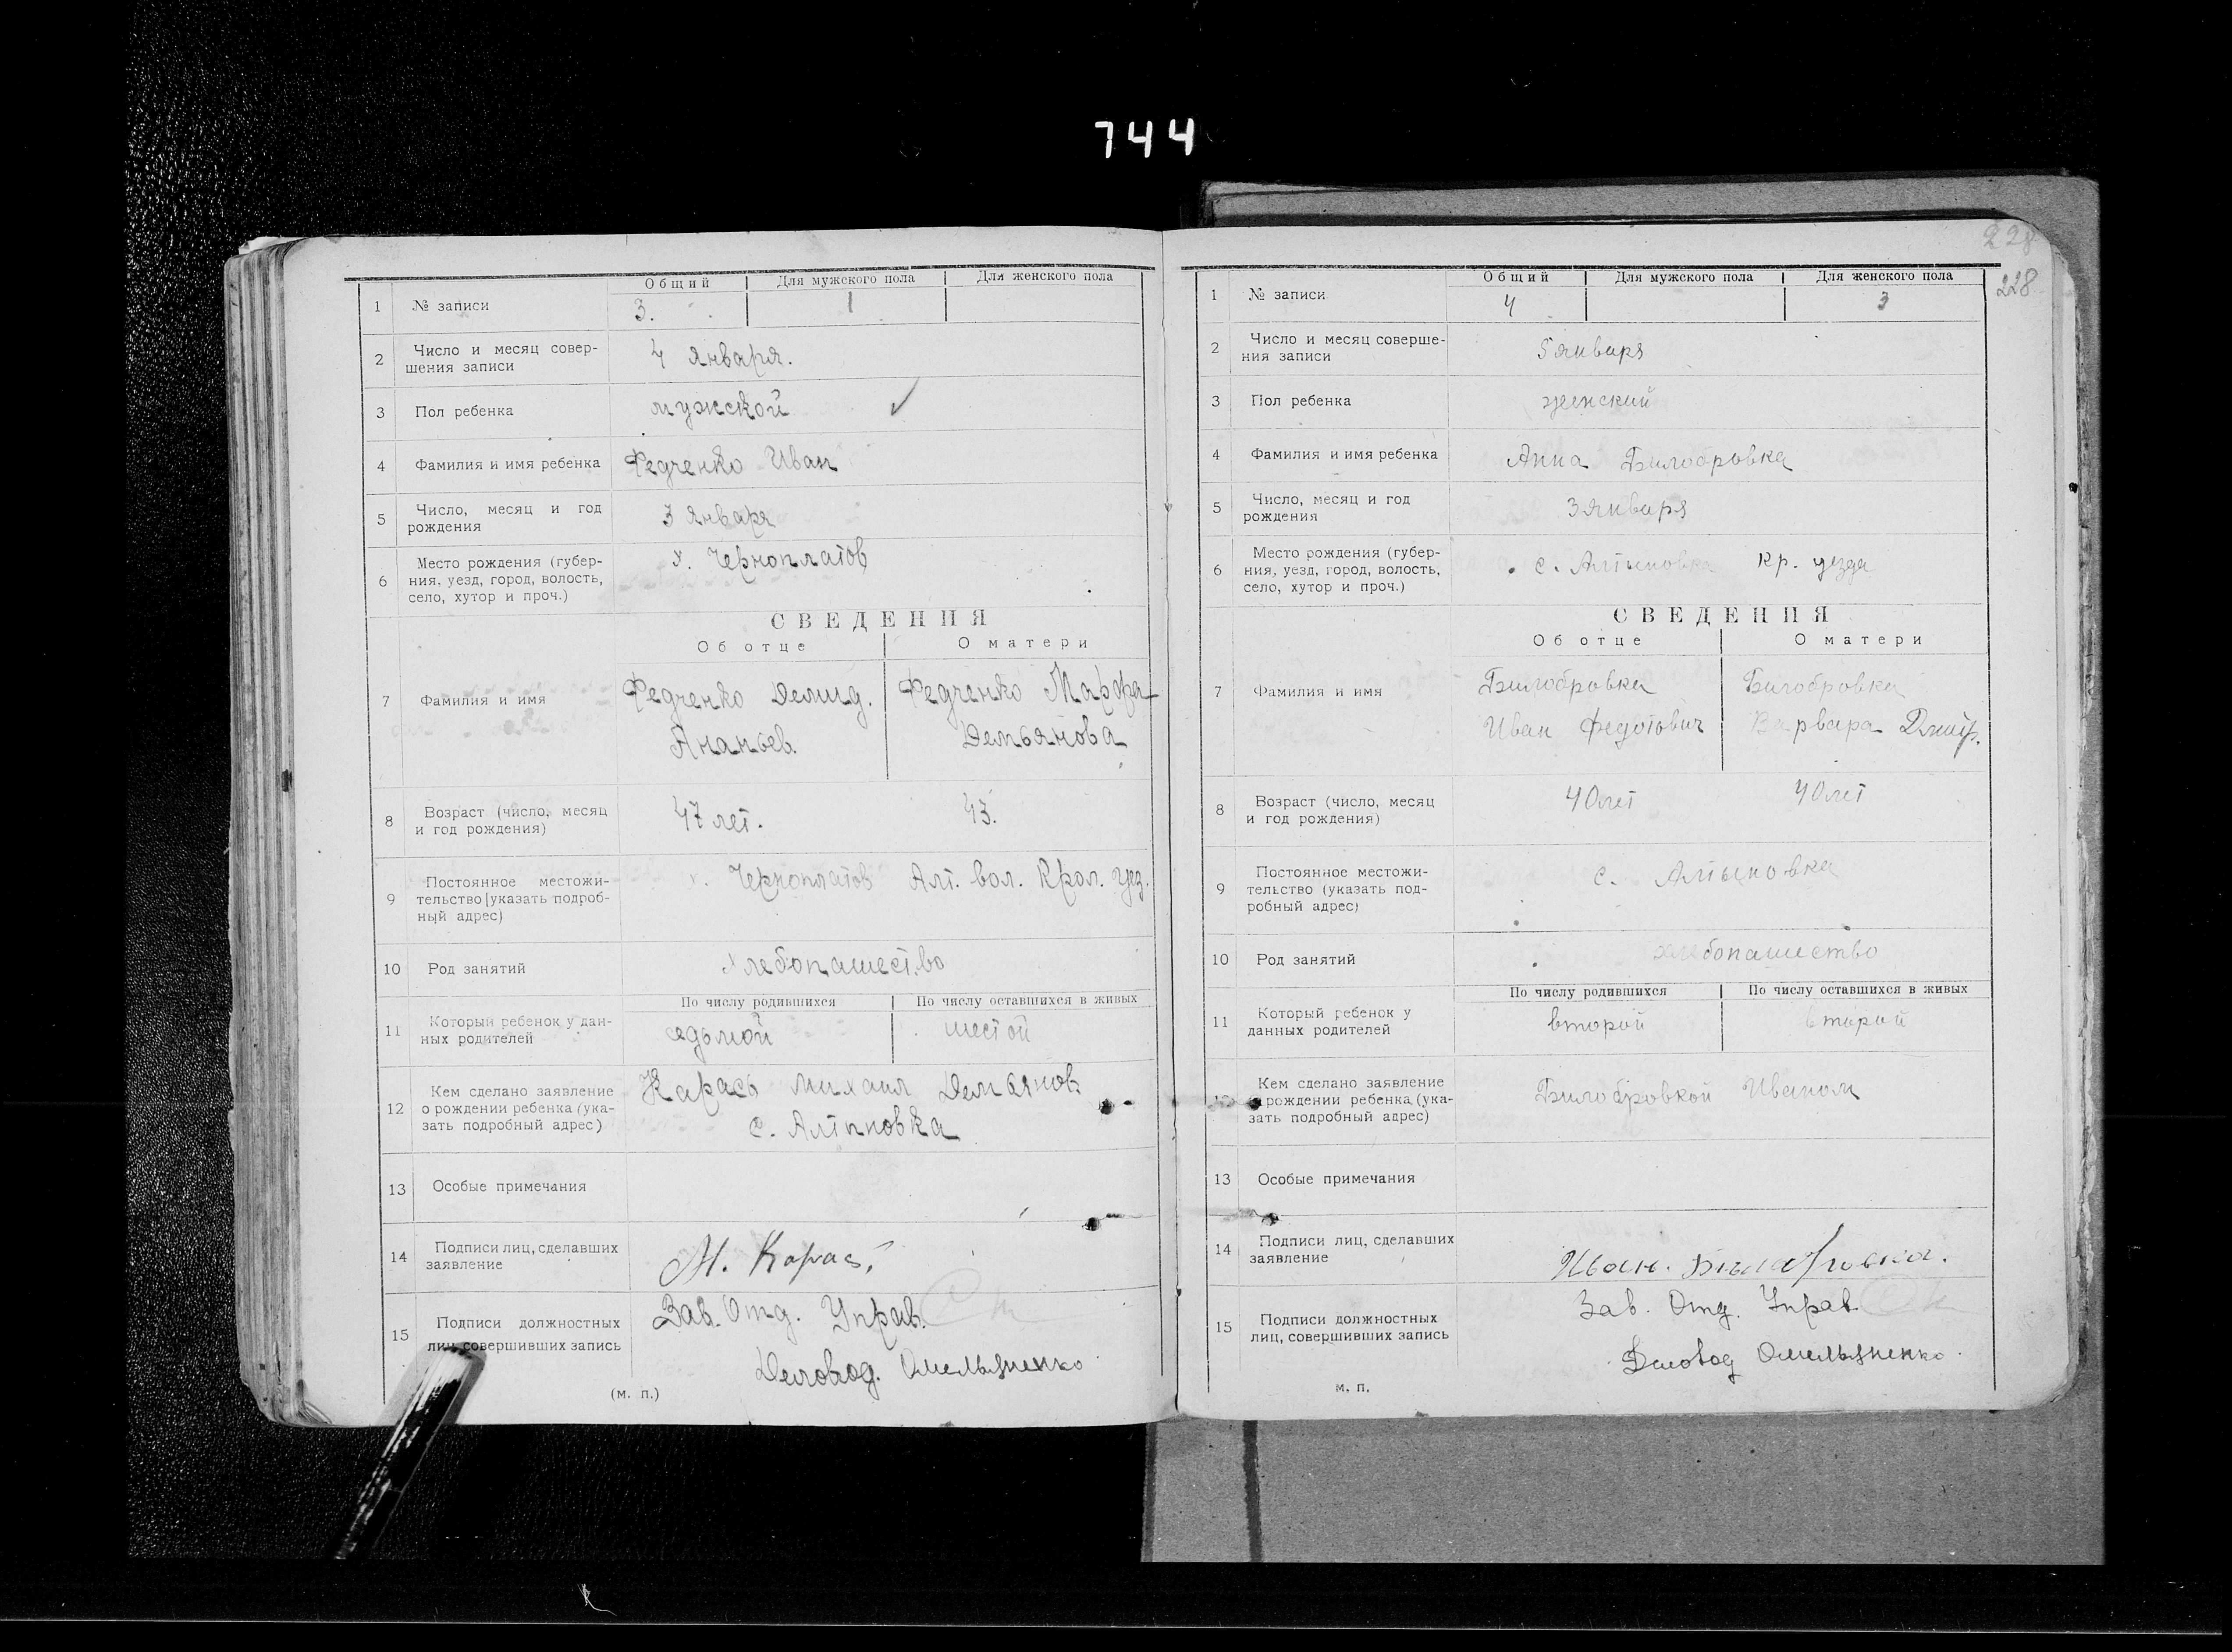 744
Общий Для мужского пола Для женского пола
1 № записи 3. 1
2 Число и месяц совер-
шения записи 4 января.
3 Пол ребенка мужской ✓
4 Фамилия и имя ребенка Федченко Иван
5 Число, месяц и год
рождения 3 января
6 Место рождения (губер-
ния, уезд, город, волость,
село, хутор и проч.) х. Черноплатов
СВЕДЕНИЯ
Об отце О матери
7 Фамилия и имя Федченко Демид. Федченко Марфа
Ананьев. Демьянова
8 Возраст (число, месяц
и год рождения) 47 лет. 43.
9 Постоянное местожи-
тельство (указать подроб-
ный адрес) х. Черноплатов Алт. вол. Крол. уез.
10 Род занятий хлебопашество
По числу родившихся По числу оставшихся в живых
11 Который ребенок у дан-
ных родителей седьмой шестой
12 Кем сделано заявление
о рождении ребенка (ука-
зать подробный адрес) Карась Михаил Демьянов
с. Алтиновка
13 Особые примечания
14 Подписи лиц, сделавших
заявление М. Карась
15 Подписи должностных
лиц, совершивших запись Зав. Отд. Управ.
Деловод. Омельяненко
(м. п.)
228
228
Общий Для мужского пола Для женского пола
1 № записи 4 3
2 Число и месяц соверше-
ния записи 5 января
3 Пол ребенка женский
4 Фамилия и имя ребенка Анна Билобровка
5 Число, месяц и год
рождения 3 января
6 Место рождения (губер-
ния, уезд, город, волость,
село, хутор и проч.) с. Алтыновка Кр. уезда
СВЕДЕНИЯ
Об отце О матери
7 Фамилия и имя Билобровка Билобровка
Иван Федотович Варвара Дмитр.
8 Возраст (число, месяц
и год рождения) 40 лет 40 лет
9 Постоянное местожи-
тельство (указать под-
робный адрес) с. Алтыновка
10 Род занятий хлебопашество
По числу родившихся По числу оставшихся в живых
11 Который ребенок у
данных родителей второй второй
12 Кем сделано заявление
о рождении ребенка (ука-
зать подробный адрес) Билобровкой Иваном
13 Особые примечания
14 Подписи лиц, сделавших
заявление Иван. Билобровка.
15 Подписи должностных
лиц, совершивших запись Зав. Отд. Управ.
Деловод Омельяненко.
м. п.